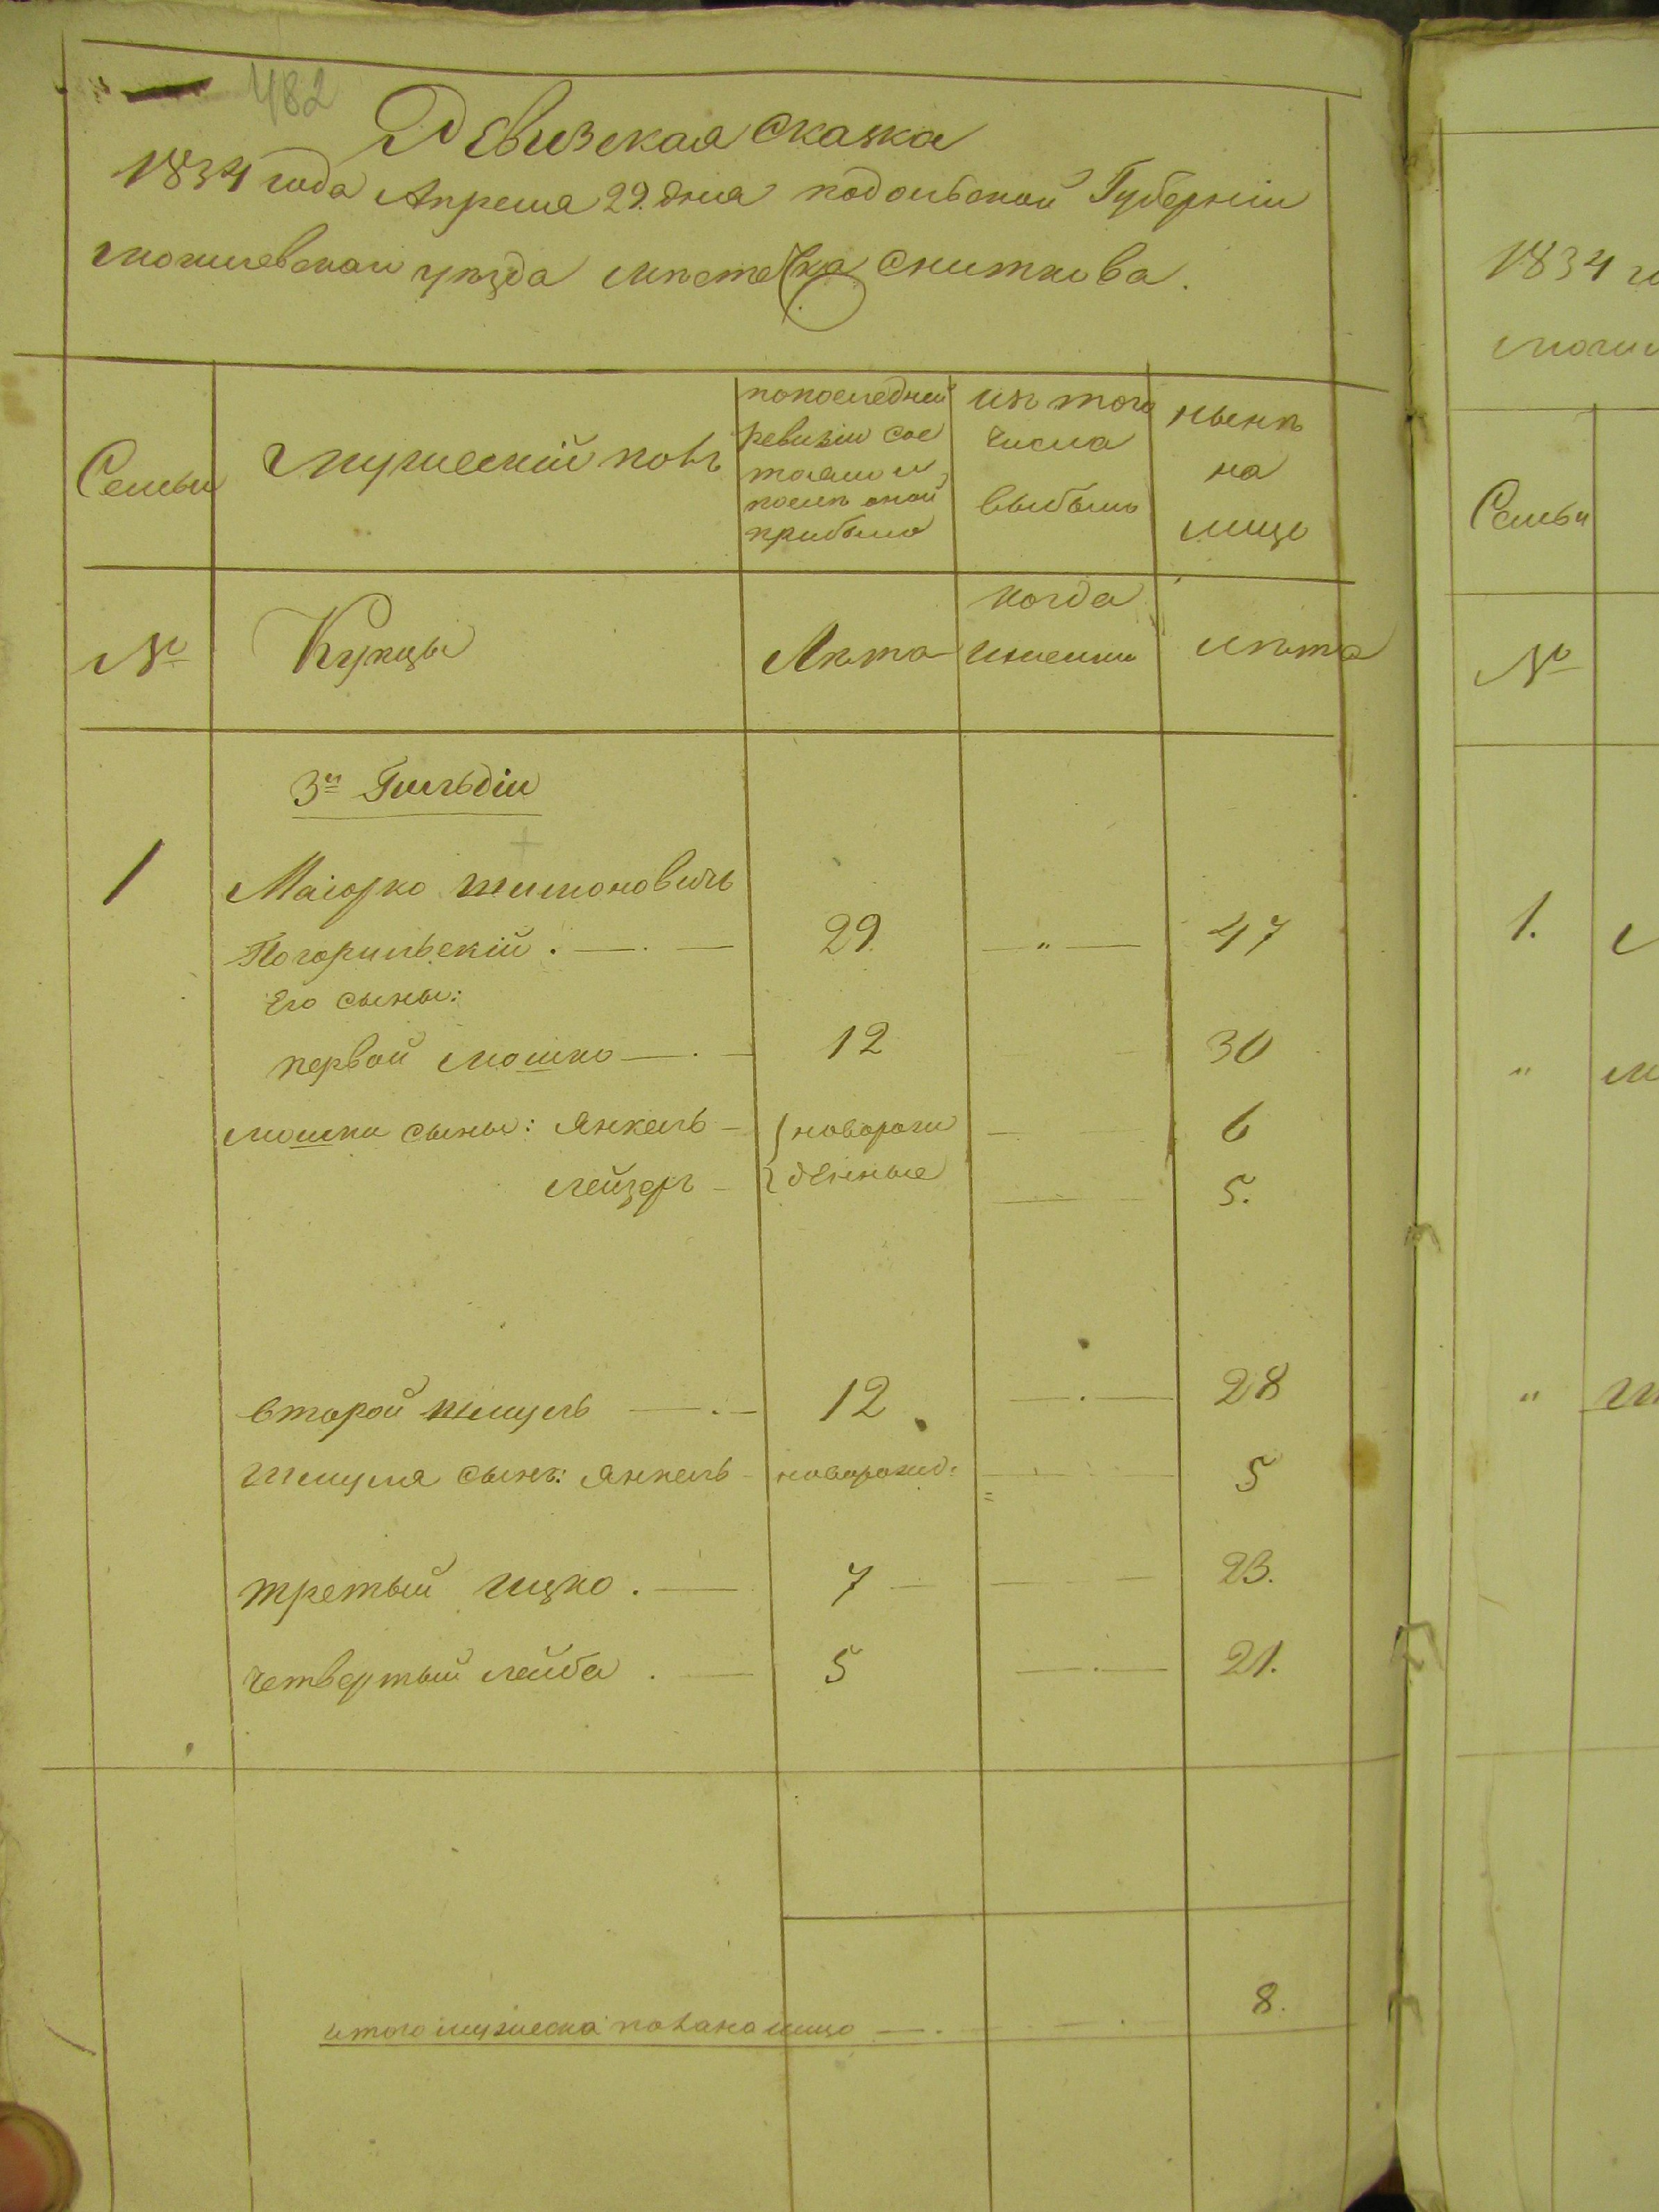 482
Ревизская сказка
1834 года Апреля 29. дня подольской Губерніи
могилевскаго уѣзда мѣстечка Сниткова.
Семьи
мужескій полъ
по последней ревизіи состояло и после оной прибыло
изъ того числа выбыло
нынѣ на лицо
№
Купцы
Лѣта
когда именно
лѣта
3й Гильдіи
1
Маіорко Шимоновичь
Погорильскій . — . — 29. — „ — 47
Его сыны:
первой мошко — . — 12 30
мошки сыны: Янкель — новорож 6
лейзеръ — денные 5.
второй шмуль — . — 12 — . — 28
шмуля сынъ: Янкель — новорожд: 5
третый ицко . — 7 — 23.
четвертый лейба . — 5 — . — 21.
итого мужеска пола на лицо — . — . 8.
1834 го
моги
Семьи
№
1.
„
„